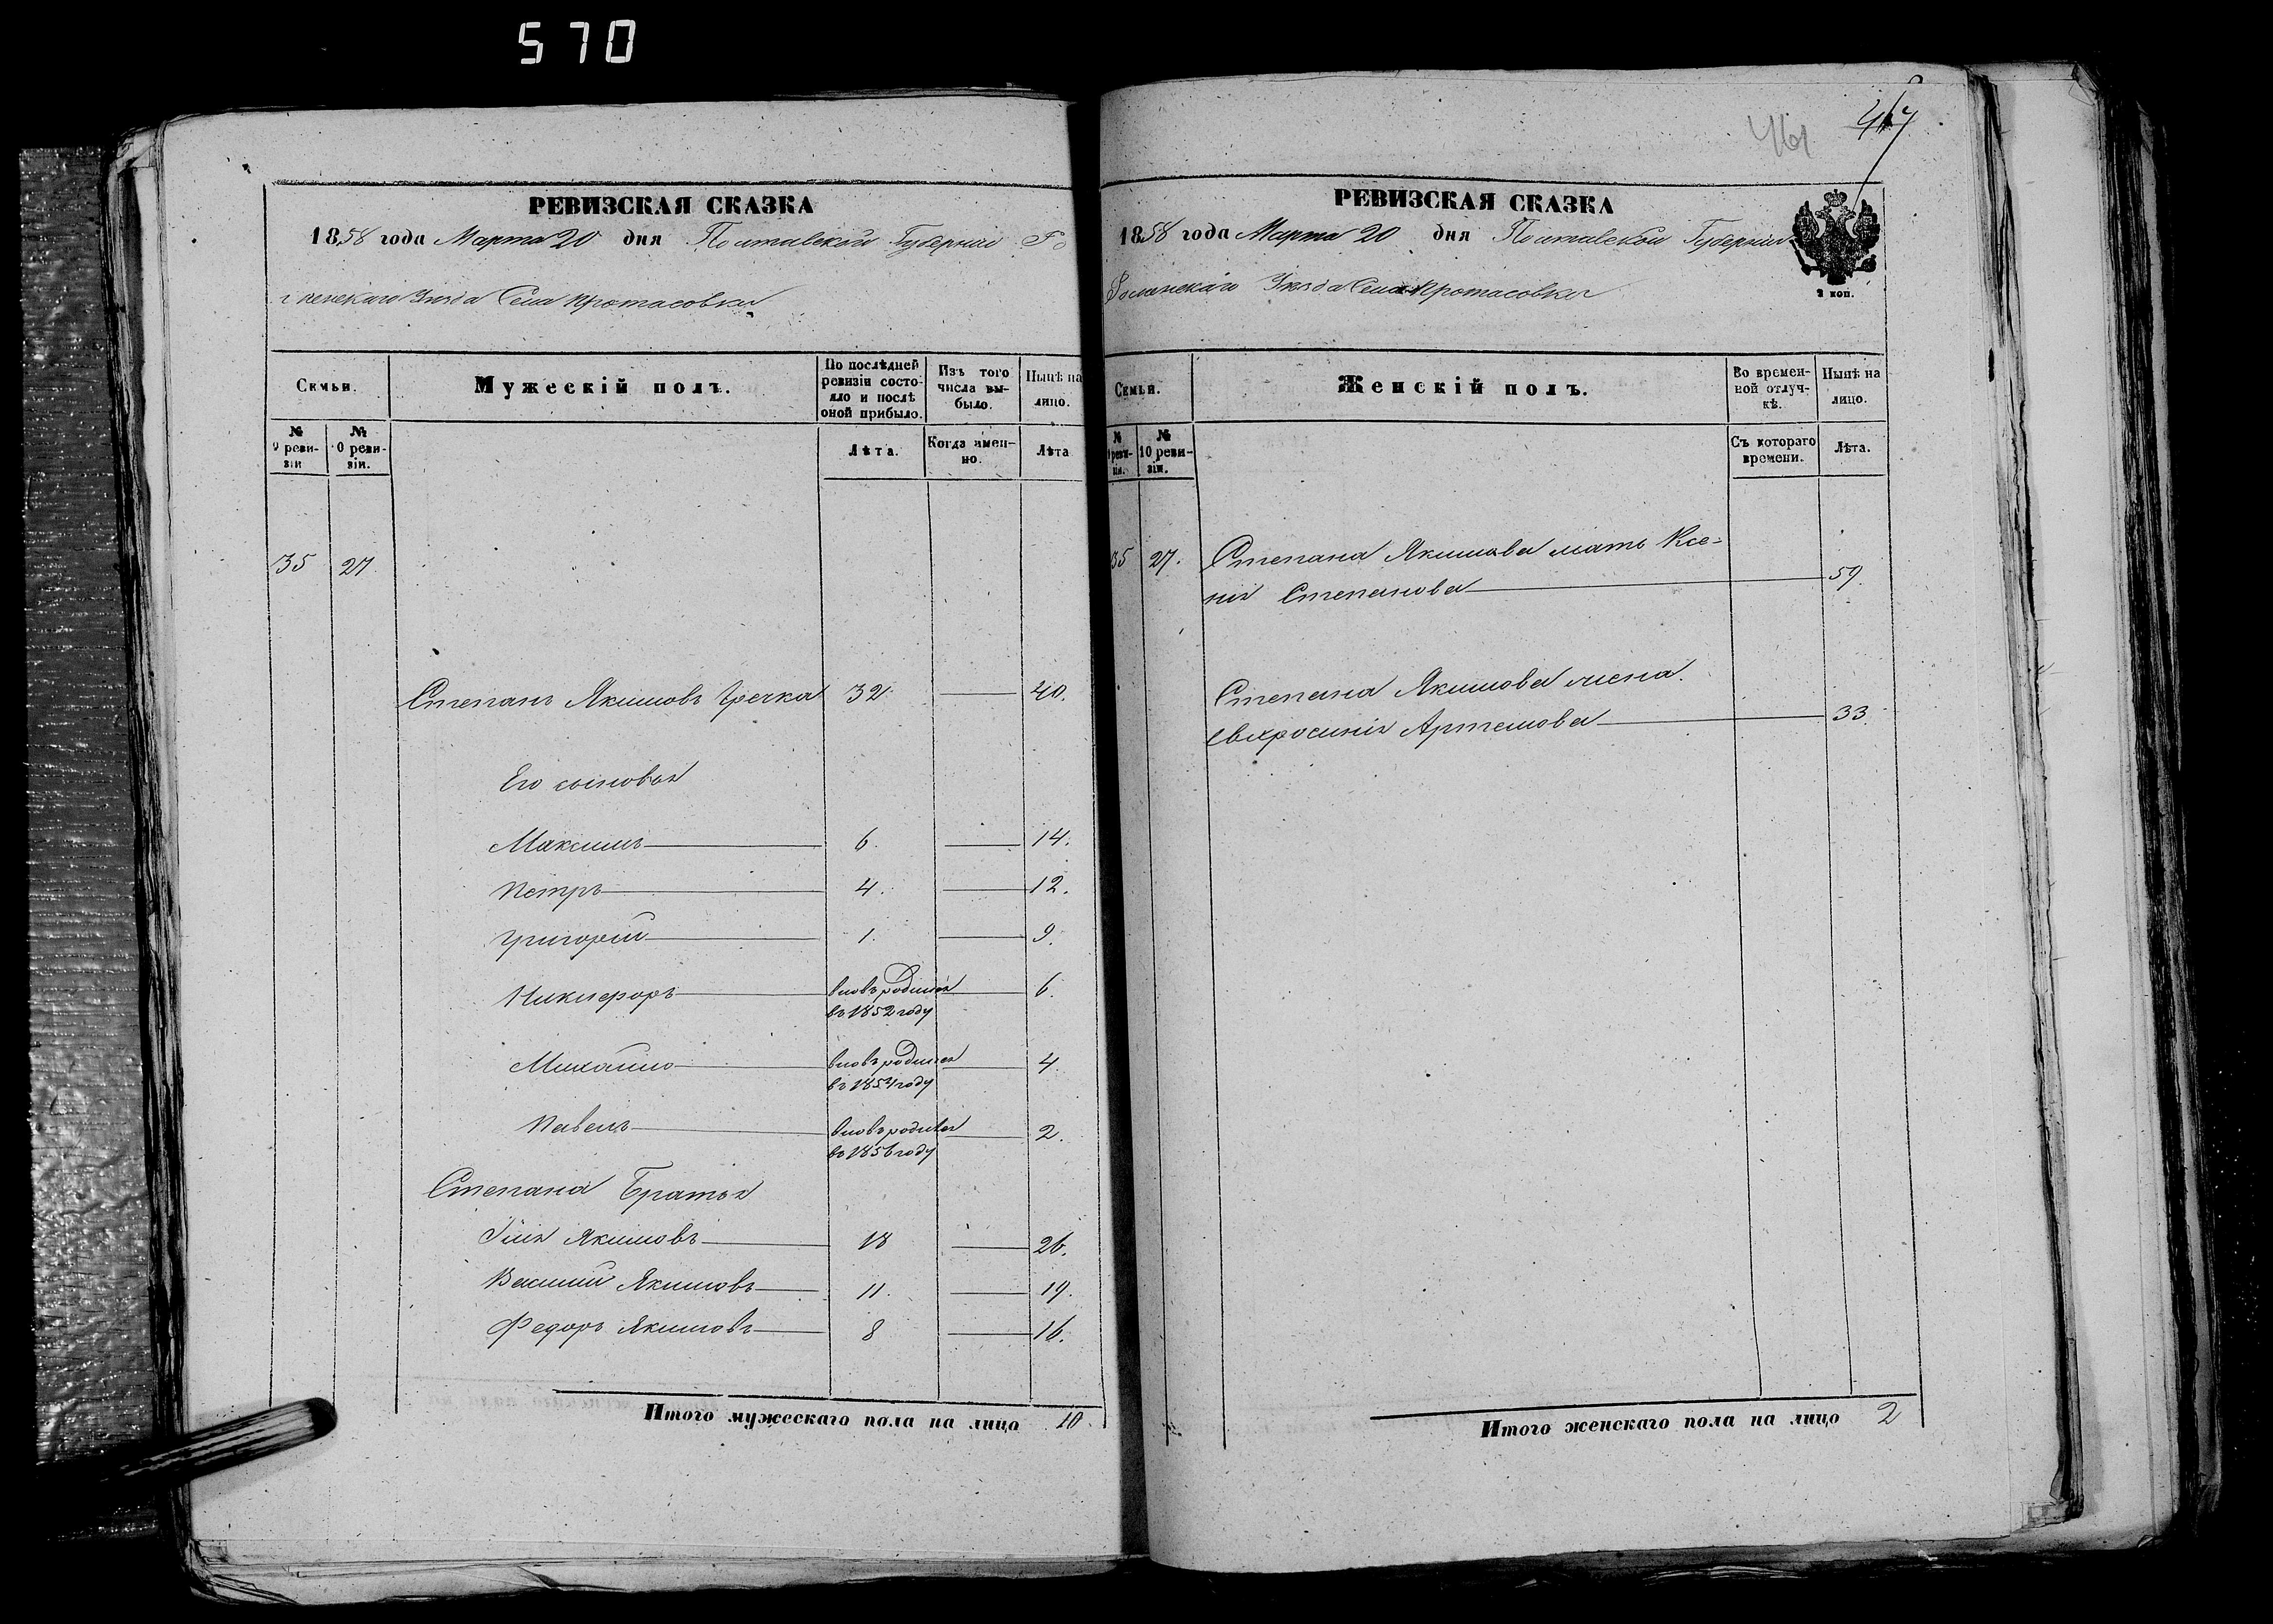 570
461
РЕВИЗСКАЯ СКАЗКА
1858 года Марта 20 дня Полтавской Губерніи Ро
менскаго Уѣзда Села Протасовки
Семьи.
Мужескій полъ.
По послѣдней ревизіи состояло и послѣ оной прибыло.
Изъ того числа выбыло.
Нынѣ на лицо.
№ 9 ревизіи
№ 10 ревизіи.
Лѣта.
Когда именно.
Лѣта
35 27
Степанъ Якимовъ Гречка 32. 40.
Его сыновья
Максимъ 6. 14.
Петръ 4. 12.
Григорій 1. 9.
Никифоръ вновь родился 6.
въ 1852 году
Михайло вновь родился 4.
въ 1854 году
Павелъ вновь родился 2.
въ 1856 году
Степана Братья
Илія Якимовъ 18 26.
Василій Якимовъ 11. 19.
Федоръ Якимовъ 8 16.
Итого мужескаго пола на лицо 10.
РЕВИЗСКАЯ СКАЗКА
1858 года Марта 20 дня Полтавской Губерніи
Роменскаго Уѣзда Села Протасовки
2 коп.
Семьи.
Женскій полъ.
Во временной отлучкѣ.
Нынѣ на лицо.
№ 9 ревизіи.
№ 10 ревизіи.
Съ котораго времени.
Лѣта.
35 27. Степана Якимова мать Ксе-
нія Степанова 59.
Степана Якимова жена
Евхросинія Артемова 33.
Итого женскаго пола на лицо 2